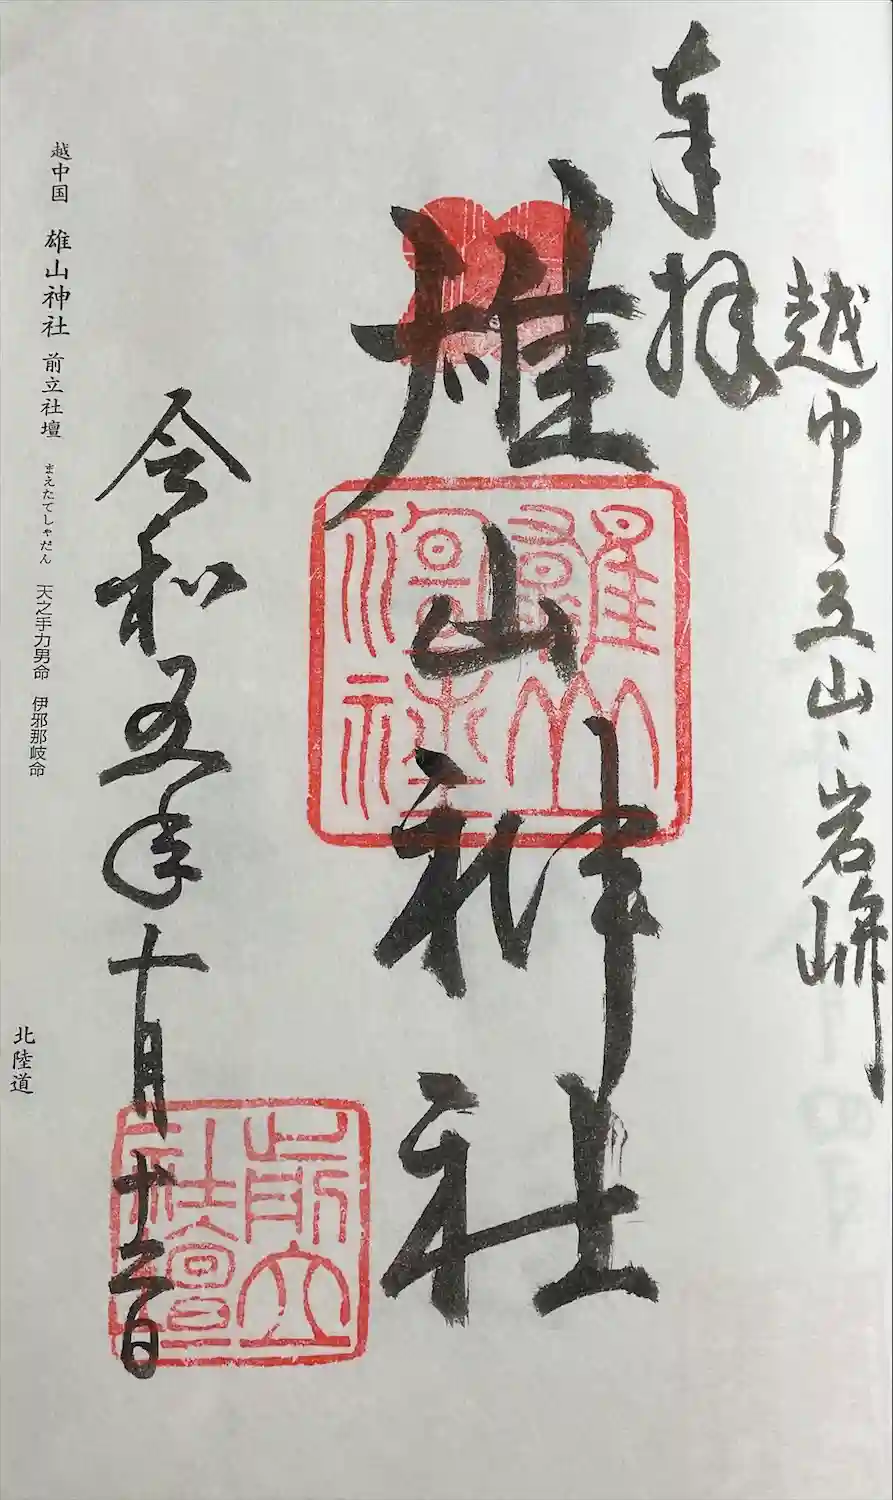 越中立山、岩峅
奉拝
雄山神社
雄山神社
前立社壇
令和五年十月十三日
越中国 雄山神社 前立社壇 まえたてしゃだん 天之手力男命 伊邪那岐命
北陸道